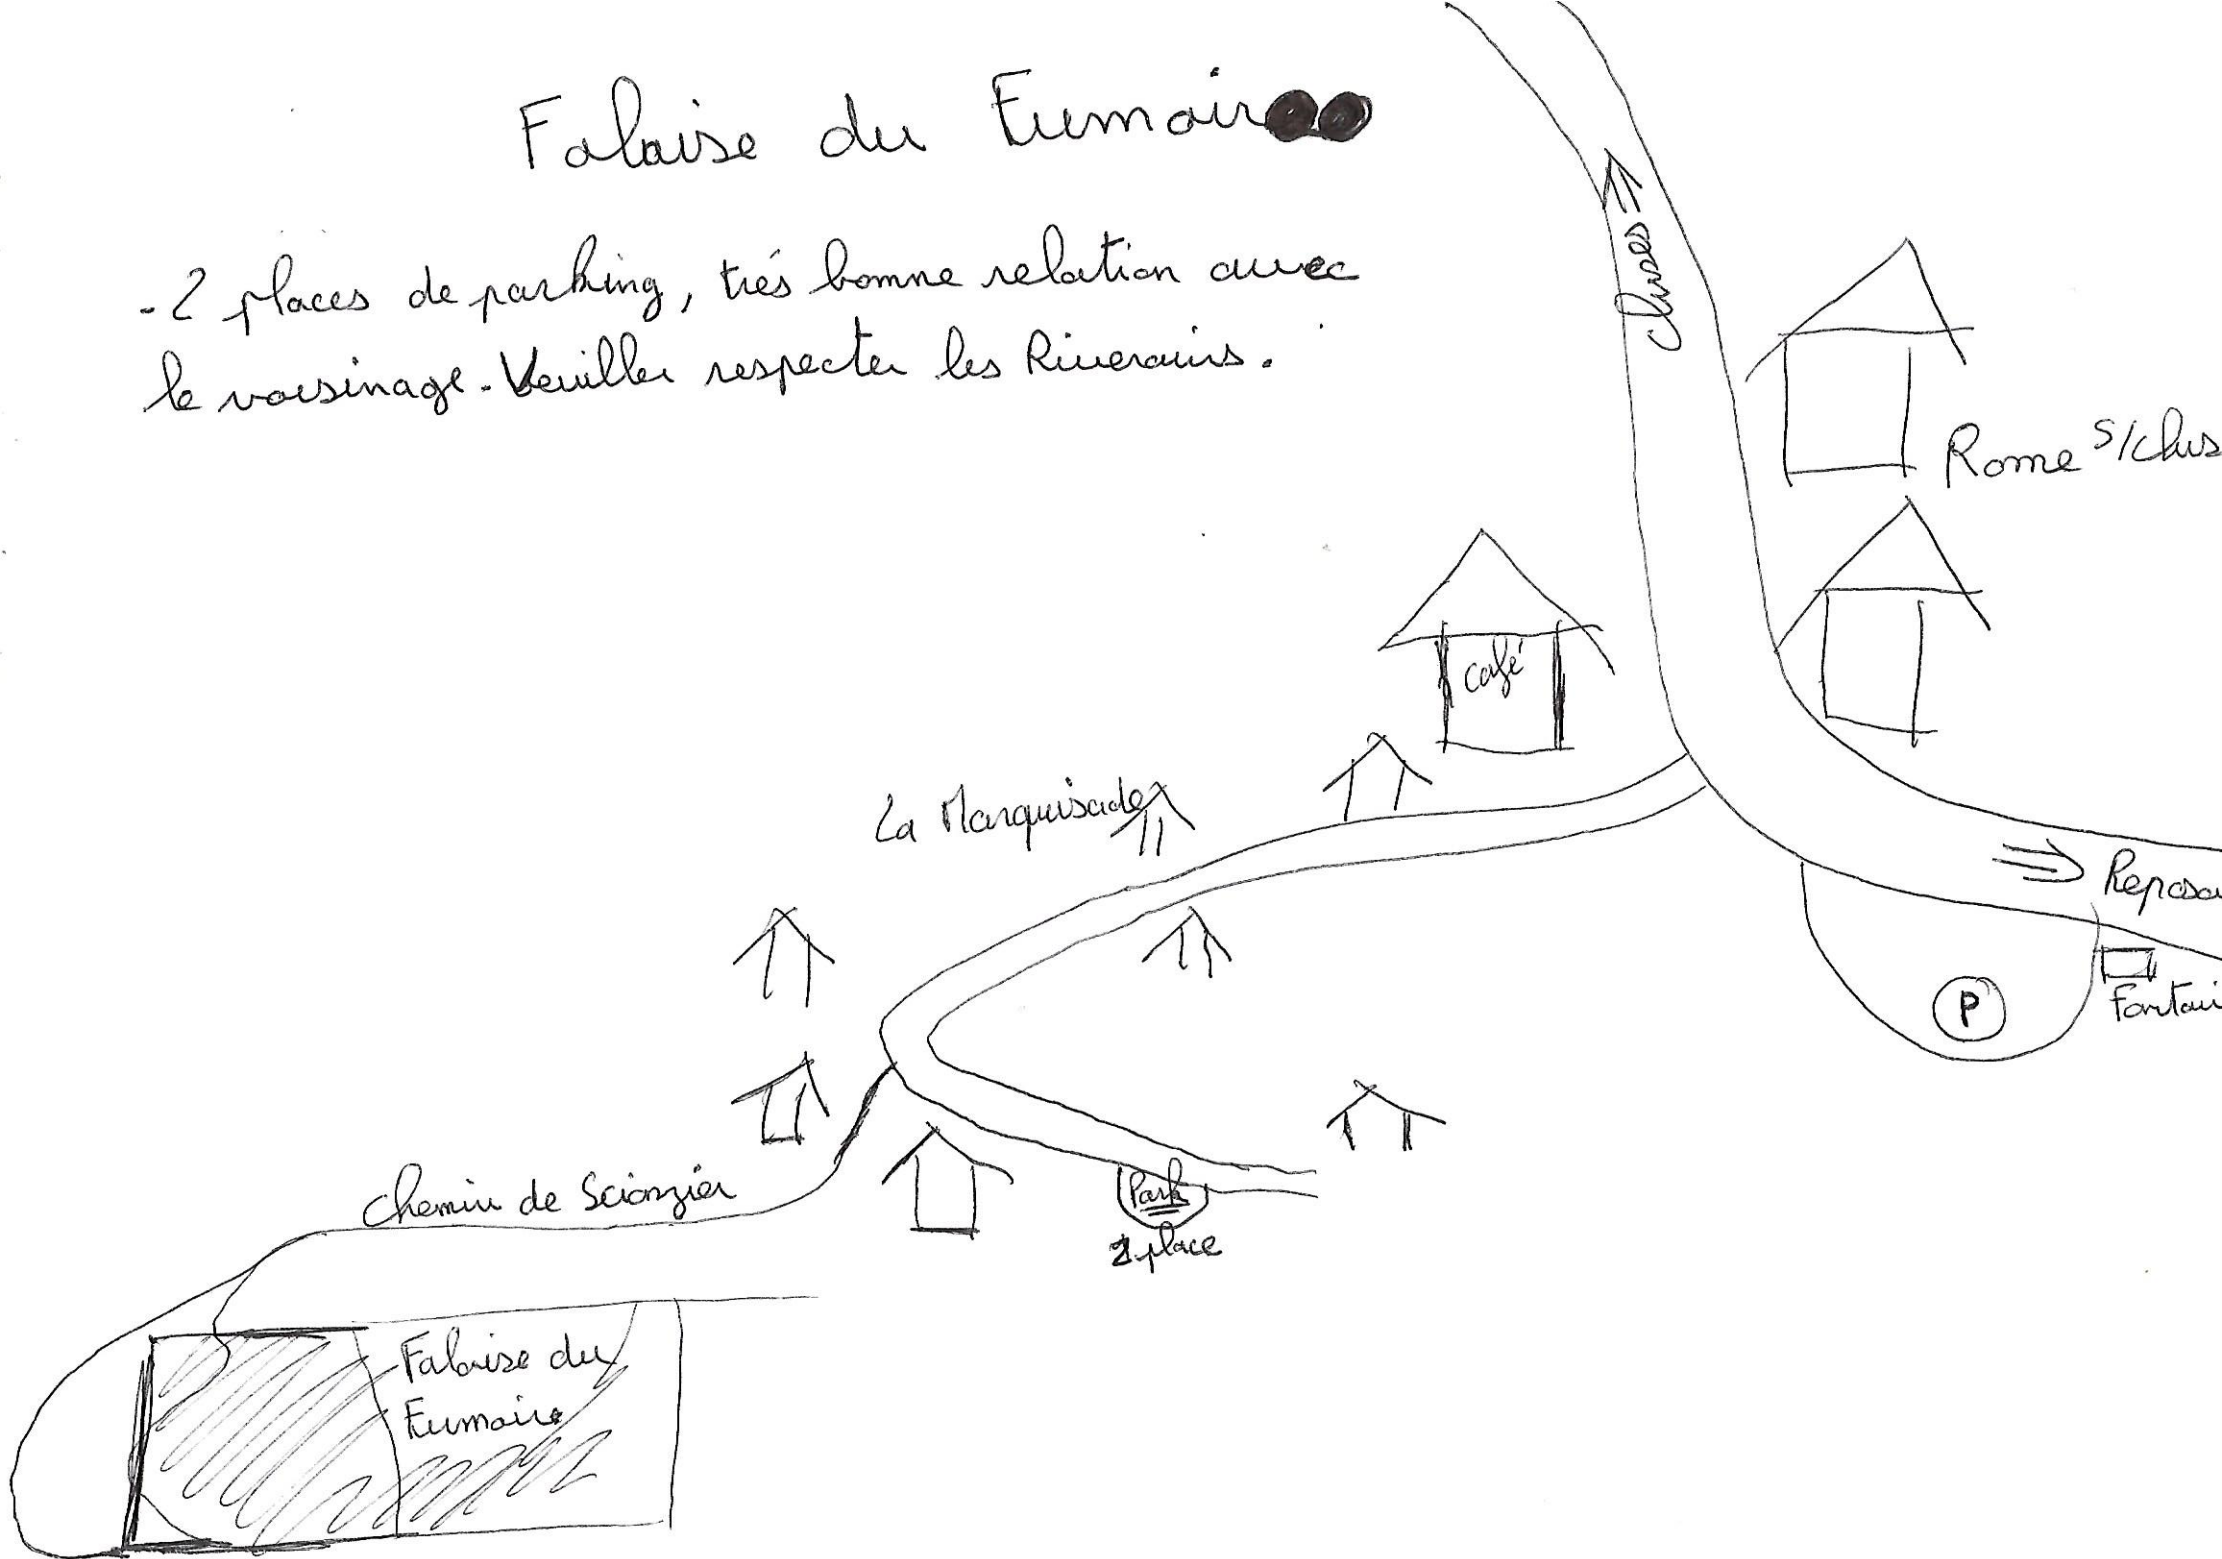 Falaise du Eumoir
- 2 places de parking, très bonne relation avec
le voisinage. Veuiller respecter les Riverains.
Cluses
Rome s/Clus
café
La Marquisade
Reposo
P
Fontai
Chemin de Scionzier
Park
2 place
Falaise du
Eumoire